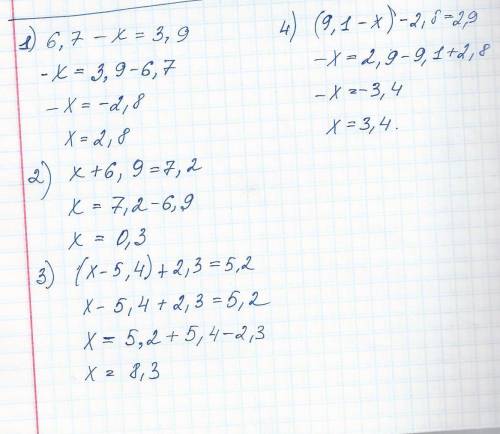 1) 6,7 - x = 3,9
-x = 3,9-6,7
-x = -2,8
x = 2,8
2) x+6,9=7,2
x = 7,2-6,9
x = 0,3
3) (x-5,4)+2,3=5,2
x- 5,4 + 2,3=5,2
x = 5,2+5,4-2,3
x = 8,3
4) (9,1-x)-2,8=2,9
-x = 2,9-9,1+2,8
-x =-3,4
x = 3,4.